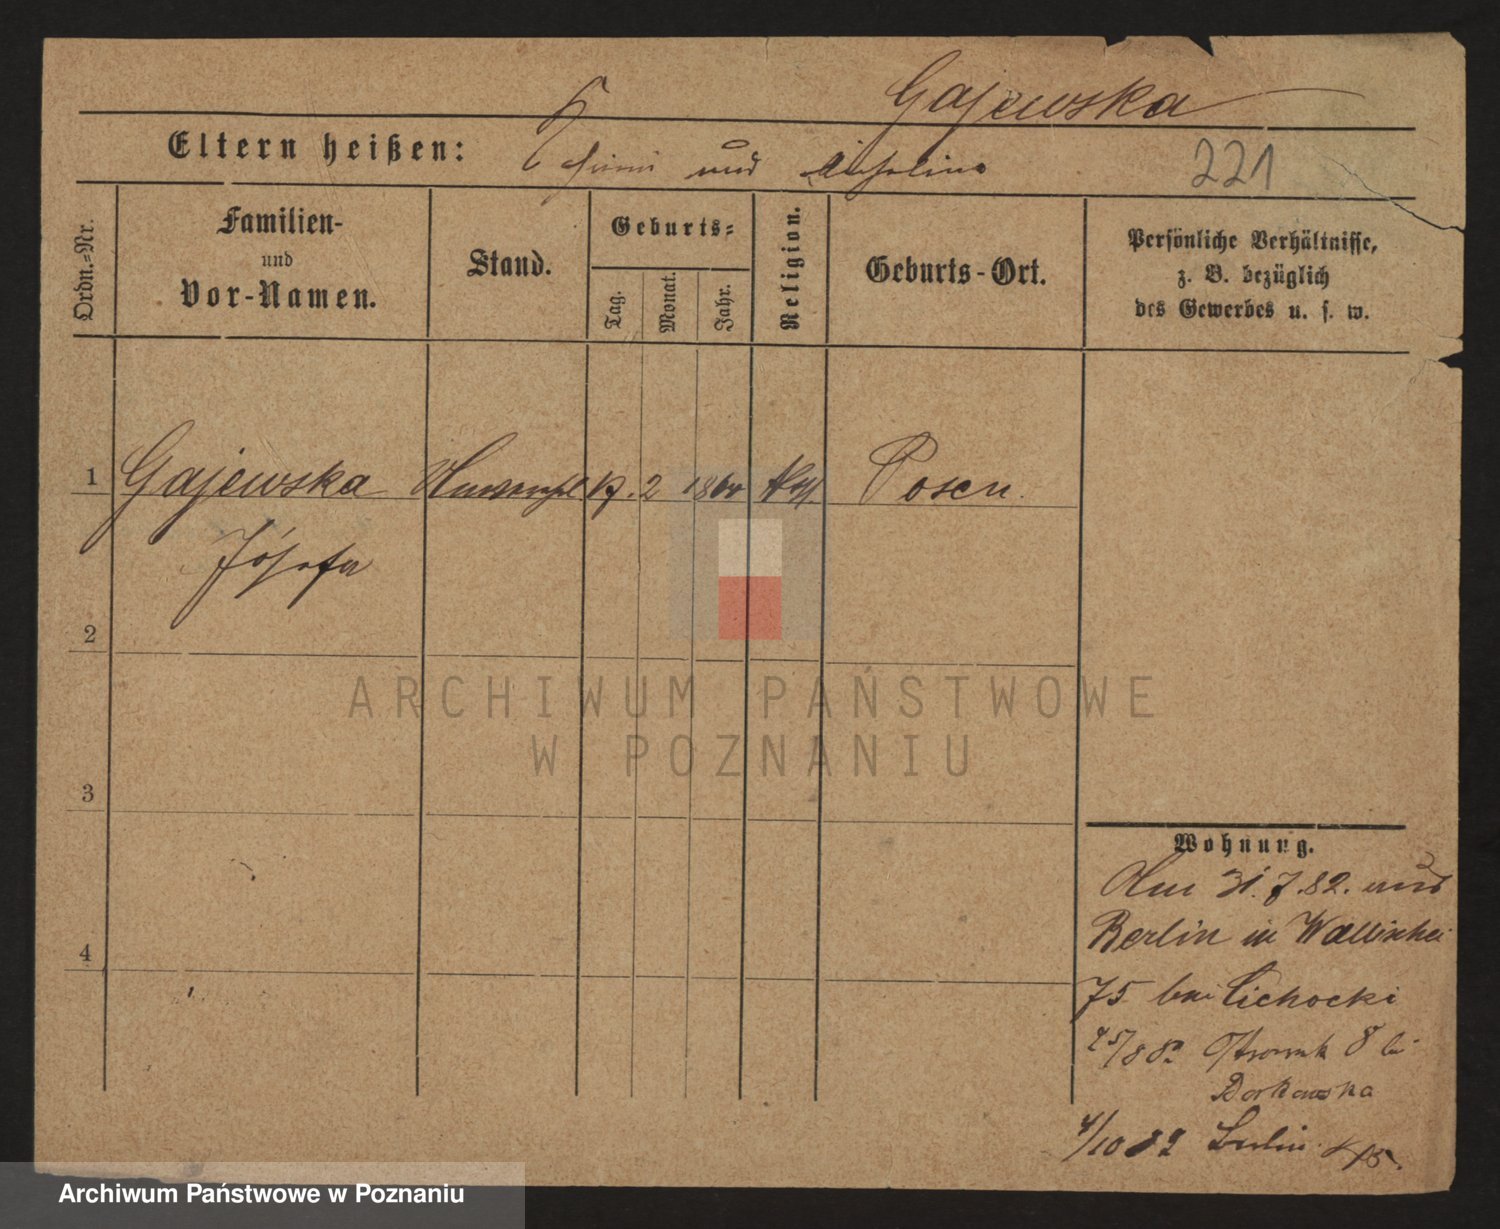 Gajewska
Eltern heißen: und
221
Ordn.-Nr.
Familien-
und
Vor-Namen.
Stand.
Geburts-
Tag.
Monat.
Jahr.
Religion.
Geburts-Ort.
Persönliche Verhältnisse,
z. B. bezüglich
des Gewerbes u. s. w.
1 Gajewska 2 Posen
Józefa
2
3
4
ARCHIWUM PAŃSTWOWE
W POZNANIU
Wohnung.
31.7.82. aus
Berlin in Wallischei
75 bei Cichocki
8 bei
4/10 82 Berlin
Archiwum Państwowe w Poznaniu